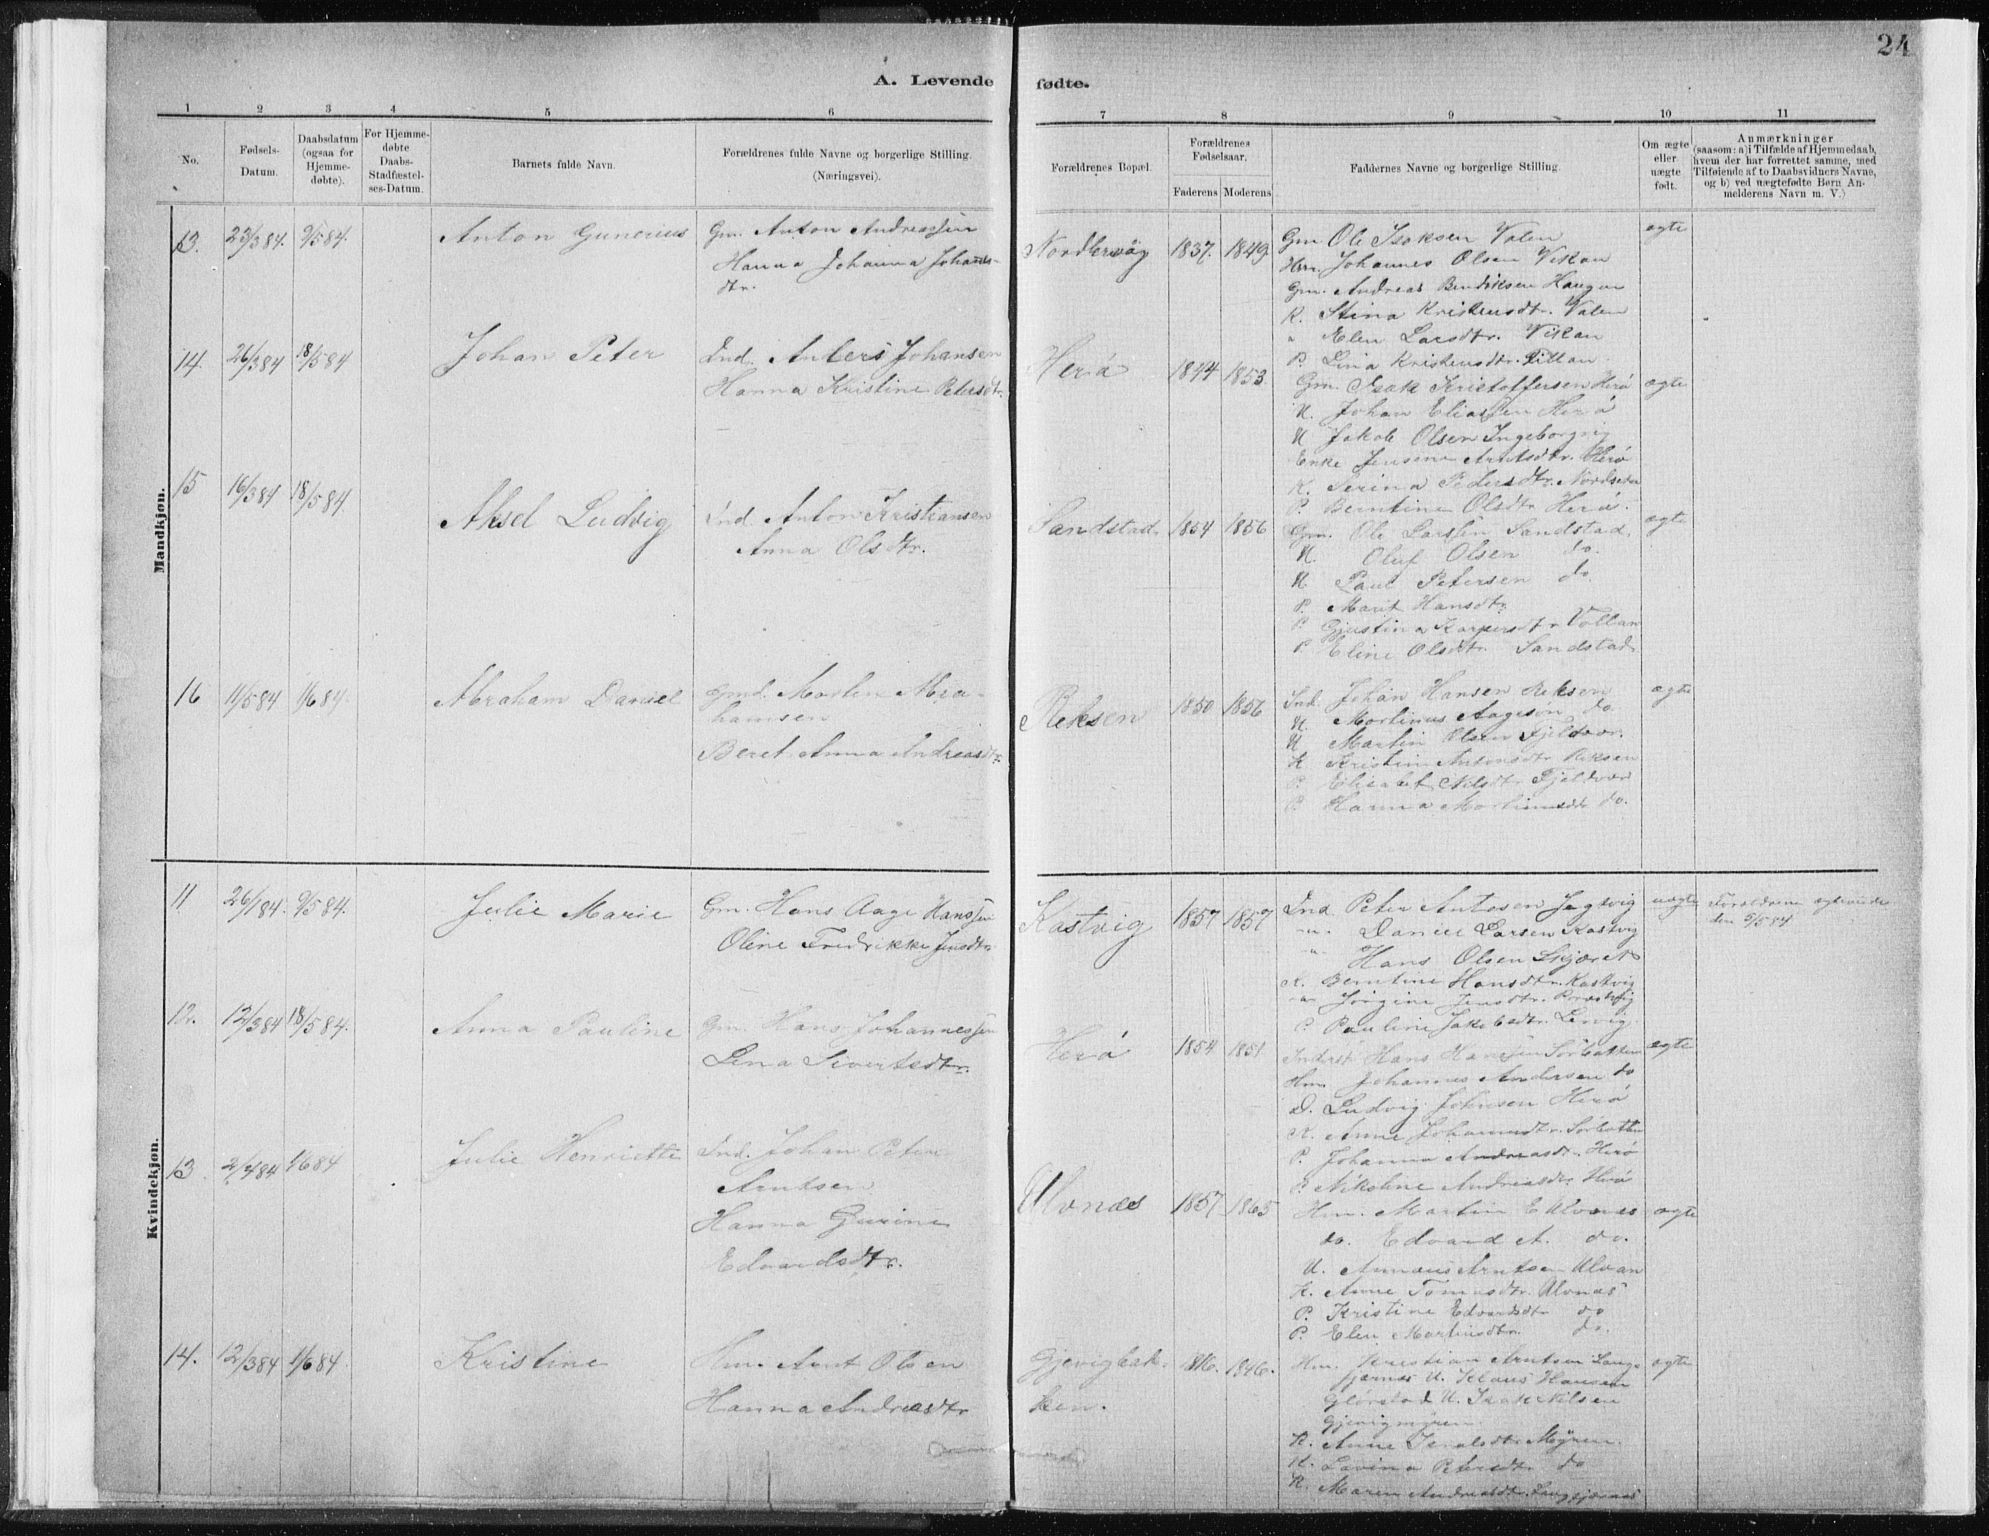 24
A. Levende fødte.
1 2 3 4 5 6 7 8 9 10 11
No.
Fødsels-
Datum.
Daabsdatum
(ogsaa for
Hjemme-
døbte).
For Hjemme-
døbte
Daabs-
Stadfæstel-
ses-Datum.
Barnets fulde Navn.
Forældrenes fulde Navne og borgerlige Stilling.
(Næringsvei).
Forældrenes Bopæl.
Forældrenes
Fødselsaar.
Faderens Moderens
Faddernes Navne og borgerlige Stilling.
Om ægte
eller
uægte
født.
Anmærkninger
(saasom: a) i Tilfælde af Hjemmedaab,
hvem der har forrettet samme, med
Tilføiende af to Daabsvidners Navne,
og b) ved uægtefødte Børn An-
melderens Navn m. V.)
Mandkjøn.
13. 23/3 84. 9/5 84. Anton Gunerius
Gm. Anton Andreassen
Hanna Johanna Johans-
dtr.
1837. 1849. ægte
Gm. Ole Isaksen Valen
Hm. Johannes Olsen Vikan
Gm. Andreas Bendiksen Haugen
K. Stina Kristensdtr. Valen
" Elen Larsdtr. Vikan
P. Lina Kristensdtr.
14. 26/3 84 18/5 84 Johan Peter
Ind. Anders Johansen
Hanna Kristine Petersdtr.
Herö 1844 1853. ægte
Gm. Isak Kristoffersen Herö
U. Johan Eliassen Herö
U. Jakob Olsen Ingeborgvig
Enke Jensine Arntsdtr. Herö
K. Serina Pedersdtr.
P. Berntine Olsdtr. Herö.
15 16/3 84 18/5 84. Aksel Ludvig
Ind. Anton Kristiansen
Anna Olsdtr.
Sandstad. 1854 1856 ægte
Gm. Ole Larssen Sandstad.
U. Oluf Olsen do.
U. Paul Petersen do
P. Marit Hansdtr.
P. Gjertina Kaspersdtr. Vollan
P. Eline Olsdtr. Sandstad
16 11/5 84 1/6 84. Abraham Daniel
Gmd. Morten
hamsen
Beret Anna Andreasdtr.
Reksen 1850 1856 ægte
Ind. Johan Hansen Reksen
U. Martinus Aagesøn do.
U. Martin Olsen Fjeldvær.
K. Kristin Antonsdtr. Reksen
P. Elisabet Nilsdtr. Fjeldvær
P. Hanna Martinusdtr. do.
Kvindekjøn.
11 26/1 84. 9/5 84. Julie Marie
Gm. Hans Aage Hanssen
Oline Fredrikke Jensdtr.
Kastvig 1857 1857 uægte
Ind. Peter Antosen Jegtvig
" Daniel Larsen Kastvig
" Hans Olsen Skjæret
K. Berntine Hansdtr. Kastvig
" Jörgine Jensdtr.
P. Pauline Jakobsdtr. Lervig.
Forældrene ægteviede
den 5/5 84
12. 12/3 84 18/5 84. Anna Pauline
Gm. Hans Johannessen
Lena Sivertsdtr.
Herö 1854 1851 ægte
Inderst Hans Hanssen
Hm. Johannes Andersen do
D. Ludvig Johnsen Herö
K. Anne
P. Johanna Andreasdtr. Herö
P. Nikoline Andreasdtr. Herö
13. 2/4 84 1/6 84 Julie Henriette
Ind. Johan Peter
Arntsen
Hanna Gurine
Edvardsdtr.
Ulvnæs 1857 1865 ægte
Hm. Martin E. Ulvnæs
do. Edvard A. do.
U. Annæus Arntsen Ulvan
K. Anne Tomasdtr. Ulvnæs
P. Kristine Edvardsdtr do
P. Elen Martinsdtr. do.
14. 12/3 84 1/6 84. Kristine
Hm. Arnt Olsen
Hanna Andreasdtr
Gjevigbak-
ken. 1846. ægte
Hm. Kristian Arntsen Lang-
jærnæs U. Klaus Hansen
Glörstad U. Isak Nilsen
Gjevigmyren.
K. Anne Myren.
K. Lavina Petersdtr do
K. Maren Andreasdtr.